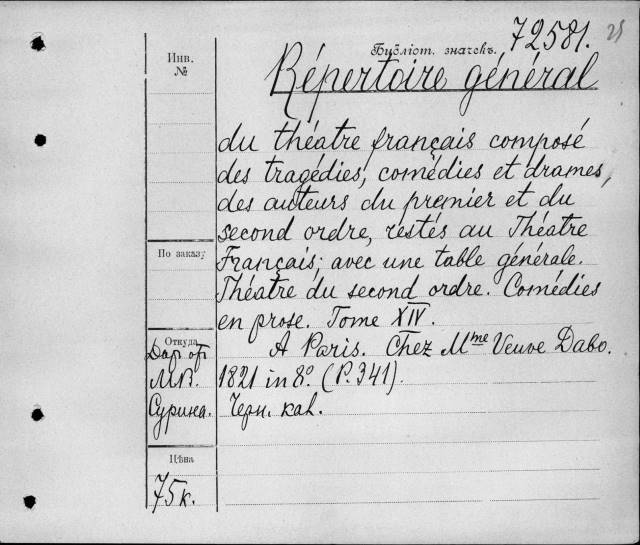 Библіот. значекъ. 72581. 25
Инв.
№
Répertoire général
du théatre français composé
des tragédies, comédies et drames,
des auteurs du premier et du
second ordre, restés au Théatre
По заказу
Français; avec une table générale.
Théatre du second ordre. Comédies
en prose. Tome XIV.
Откуда
A Paris. Chez Mme Veuve Dabo.
Дар от
М.В.
Сурина.
1821 in 8º (P. 341).
Черн. кал.
Цѣна
75 к.